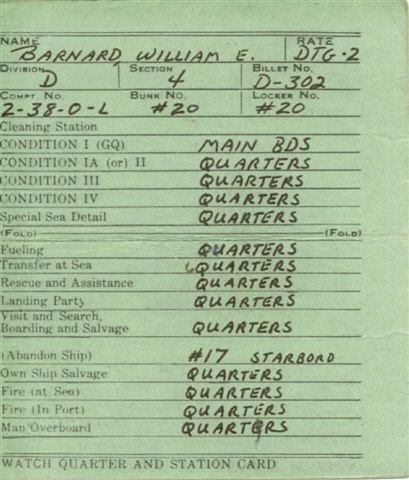 NAME RATE
BARNARD, WILLIAM E. DTG-2
DIVISION SECTION BILLET NO.
D 4 D-302
COMPT. NO. BUNK NO. LOCKER NO.
2-38-0-L #20 #20
Cleaning Station
CONDITION I (GQ) MAIN BDS
CONDITION IA (or) II QUARTERS
CONDITION III QUARTERS
CONDITION IV QUARTERS
Special Sea Detail QUARTERS
(FOLD) (FOLD)
Fueling QUARTERS
Transfer at Sea QUARTERS
Rescue and Assistance QUARTERS
Landing Party QUARTERS
Visit and Search,
Boarding and Salvage QUARTERS
(Abandon Ship) #17 STARBORD
Own Ship Salvage QUARTERS
Fire (at Sea) QUARTERS
Fire (In Port) QUARTERS
Man Overboard QUARTERS
WATCH QUARTER AND STATION CARD